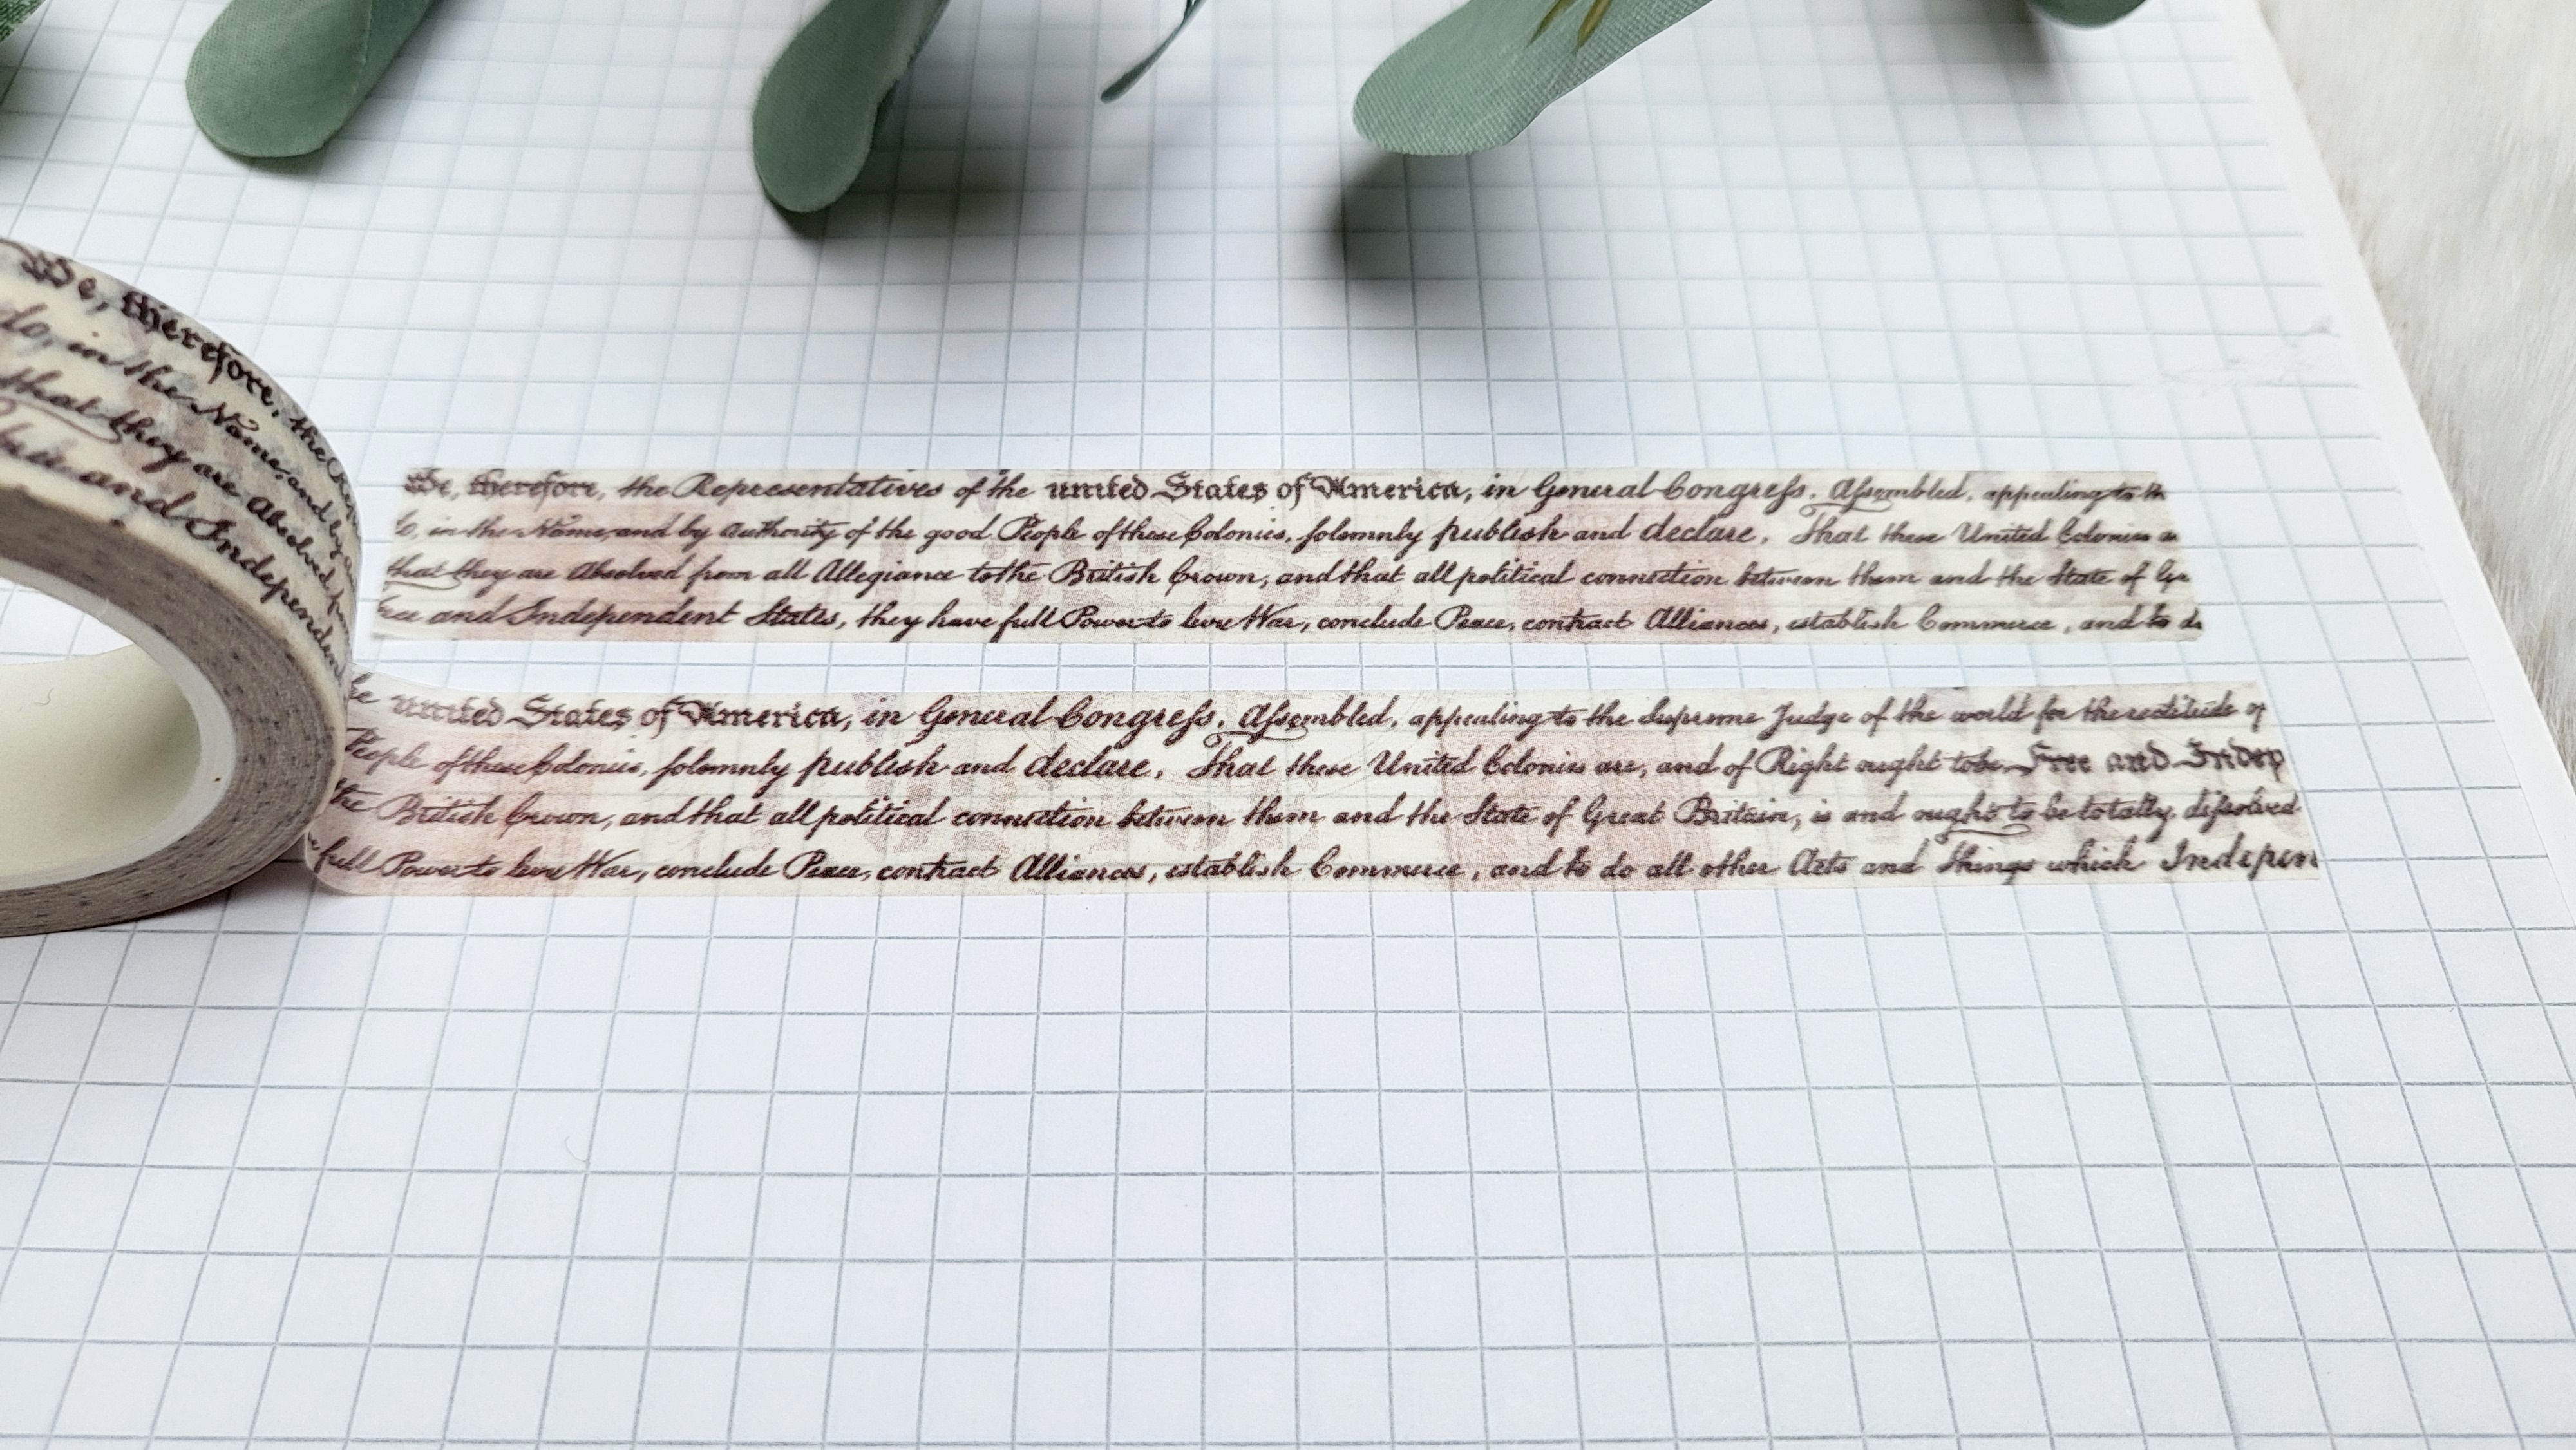 We, therefore, the Rep
do, in the Name, and by
that they are Absolved from
and Independent
We, therefore, the Representatives of the united States of America, in General Congreſs, Aſsembled, appealing to th
do, in the Name, and by Authority of the good People of these Colonies, solemnly publish and declare, That these United Colonies a
that they are Absolved from all Allegiance to the British Crown, and that all political connection between them and the State of Gre
Free and Independent States, they have full Power to levy War, conclude Peace, contract Alliances, establish Commerce, and to d
he united States of America, in General Congreſs, Aſsembled, appealing to the Supreme Judge of the world for the rectitude of
People of these Colonies, solemnly publish and declare, That these United Colonies are, and of Right ought to be Free and Indep
the British Crown, and that all political connection between them and the State of Great Britain, is and ought to be totally diſsolved
full Power to levy War, conclude Peace, contract Alliances, establish Commerce, and to do all other Acts and Things which Indepen